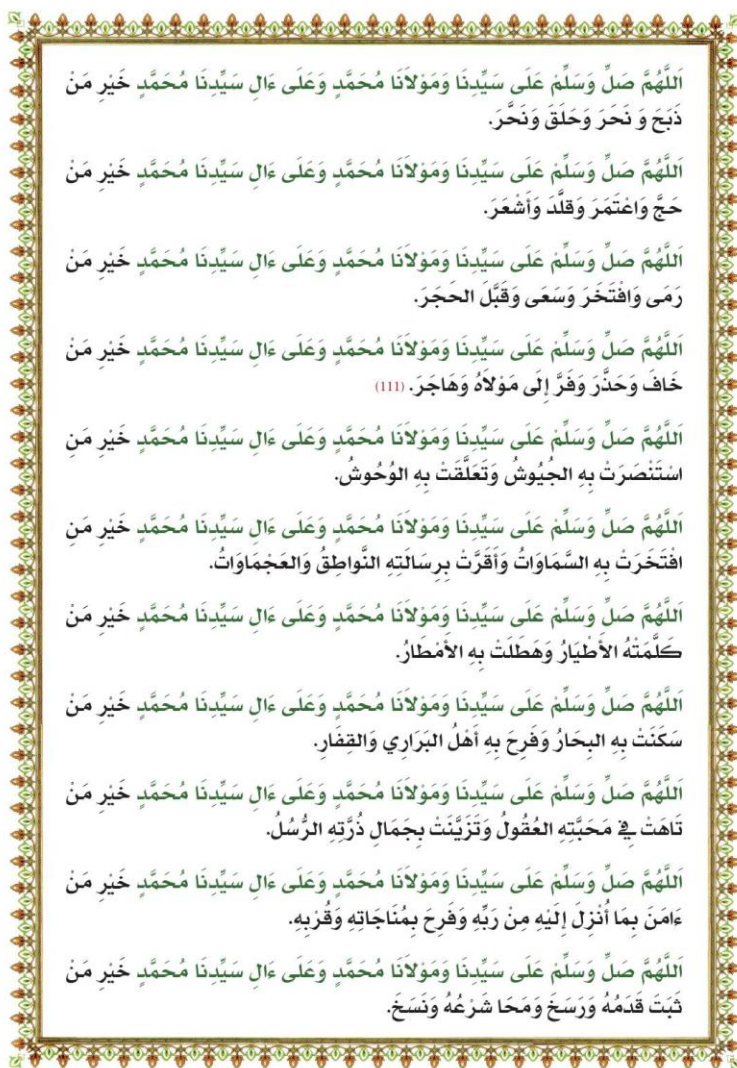 اَللَّهُمَّ صَلِّ وَسَلِّمْ عَلَى سَيِّدِنَا وَمَوْلَانَا مُحَمَّدٍ وَعَلَى ءَالِ سَيِّدِنَا مُحَمَّدٍ خَيْرِ مَنْ
ذَبَحَ وَ نَحَرَ وَحَلَقَ وَنَحَّرَ.
اَللَّهُمَّ صَلِّ وَسَلِّمْ عَلَى سَيِّدِنَا وَمَوْلَانَا مُحَمَّدٍ وَعَلَى ءَالِ سَيِّدِنَا مُحَمَّدٍ خَيْرِ مَنْ
حَجَّ وَاعْتَمَرَ وَقَلَّدَ وَأَشْعَرَ.
اَللَّهُمَّ صَلِّ وَسَلِّمْ عَلَى سَيِّدِنَا وَمَوْلَانَا مُحَمَّدٍ وَعَلَى ءَالِ سَيِّدِنَا مُحَمَّدٍ خَيْرِ مَنْ
رَمَى وَافْتَخَرَ وَسَعَى وَقَبَّلَ الحَجَرَ.
اَللَّهُمَّ صَلِّ وَسَلِّمْ عَلَى سَيِّدِنَا وَمَوْلَانَا مُحَمَّدٍ وَعَلَى ءَالِ سَيِّدِنَا مُحَمَّدٍ خَيْرِ مَنْ
خَافَ وَحَذَّرَ وَفَرَّ إِلَى مَوْلَاهُ وَهَاجَرَ. (111)
اَللَّهُمَّ صَلِّ وَسَلِّمْ عَلَى سَيِّدِنَا وَمَوْلَانَا مُحَمَّدٍ وَعَلَى ءَالِ سَيِّدِنَا مُحَمَّدٍ خَيْرِ مَنِ
اسْتَنْصَرَتْ بِهِ الجُيُوشُ وَتَعَلَّقَتْ بِهِ الوُحُوشُ.
اَللَّهُمَّ صَلِّ وَسَلِّمْ عَلَى سَيِّدِنَا وَمَوْلَانَا مُحَمَّدٍ وَعَلَى ءَالِ سَيِّدِنَا مُحَمَّدٍ خَيْرِ مَنِ
افْتَخَرَتْ بِهِ السَّمَاوَاتُ وَأَقَرَّتْ بِرِسَالَتِهِ النَّواطِقُ وَالعَجْمَاوَاتُ.
اَللَّهُمَّ صَلِّ وَسَلِّمْ عَلَى سَيِّدِنَا وَمَوْلَانَا مُحَمَّدٍ وَعَلَى ءَالِ سَيِّدِنَا مُحَمَّدٍ خَيْرِ مَنْ
كَلَّمَتْهُ الأَطْيَارُ وَهَطَلَتْ بِهِ الأَمْطَارُ.
اَللَّهُمَّ صَلِّ وَسَلِّمْ عَلَى سَيِّدِنَا وَمَوْلَانَا مُحَمَّدٍ وَعَلَى ءَالِ سَيِّدِنَا مُحَمَّدٍ خَيْرِ مَنْ
سَكَنَتْ بِهِ البِحَارُ وَفَرِحَ بِهِ أَهْلُ البَرَارِي وَالقِفَارِ.
اَللَّهُمَّ صَلِّ وَسَلِّمْ عَلَى سَيِّدِنَا وَمَوْلَانَا مُحَمَّدٍ وَعَلَى ءَالِ سَيِّدِنَا مُحَمَّدٍ خَيْرِ مَنْ
تَاهَتْ فِي مَحَبَّتِهِ العُقُولُ وَتَزَيَّنَتْ بِجَمَالِ دُرَّتِهِ الرُّسُلُ.
اَللَّهُمَّ صَلِّ وَسَلِّمْ عَلَى سَيِّدِنَا وَمَوْلَانَا مُحَمَّدٍ وَعَلَى ءَالِ سَيِّدِنَا مُحَمَّدٍ خَيْرِ مَنْ
ءَامَنَ بِمَا أُنْزِلَ إِلَيْهِ مِنْ رَبِّهِ وَفَرِحَ بِمُنَاجَاتِهِ وَقُرْبِهِ.
اَللَّهُمَّ صَلِّ وَسَلِّمْ عَلَى سَيِّدِنَا وَمَوْلَانَا مُحَمَّدٍ وَعَلَى ءَالِ سَيِّدِنَا مُحَمَّدٍ خَيْرِ مَنْ
ثَبَتَ قَدَمُهُ وَرَسَخَ وَمَحَا شَرْعُهُ وَنَسَخَ.